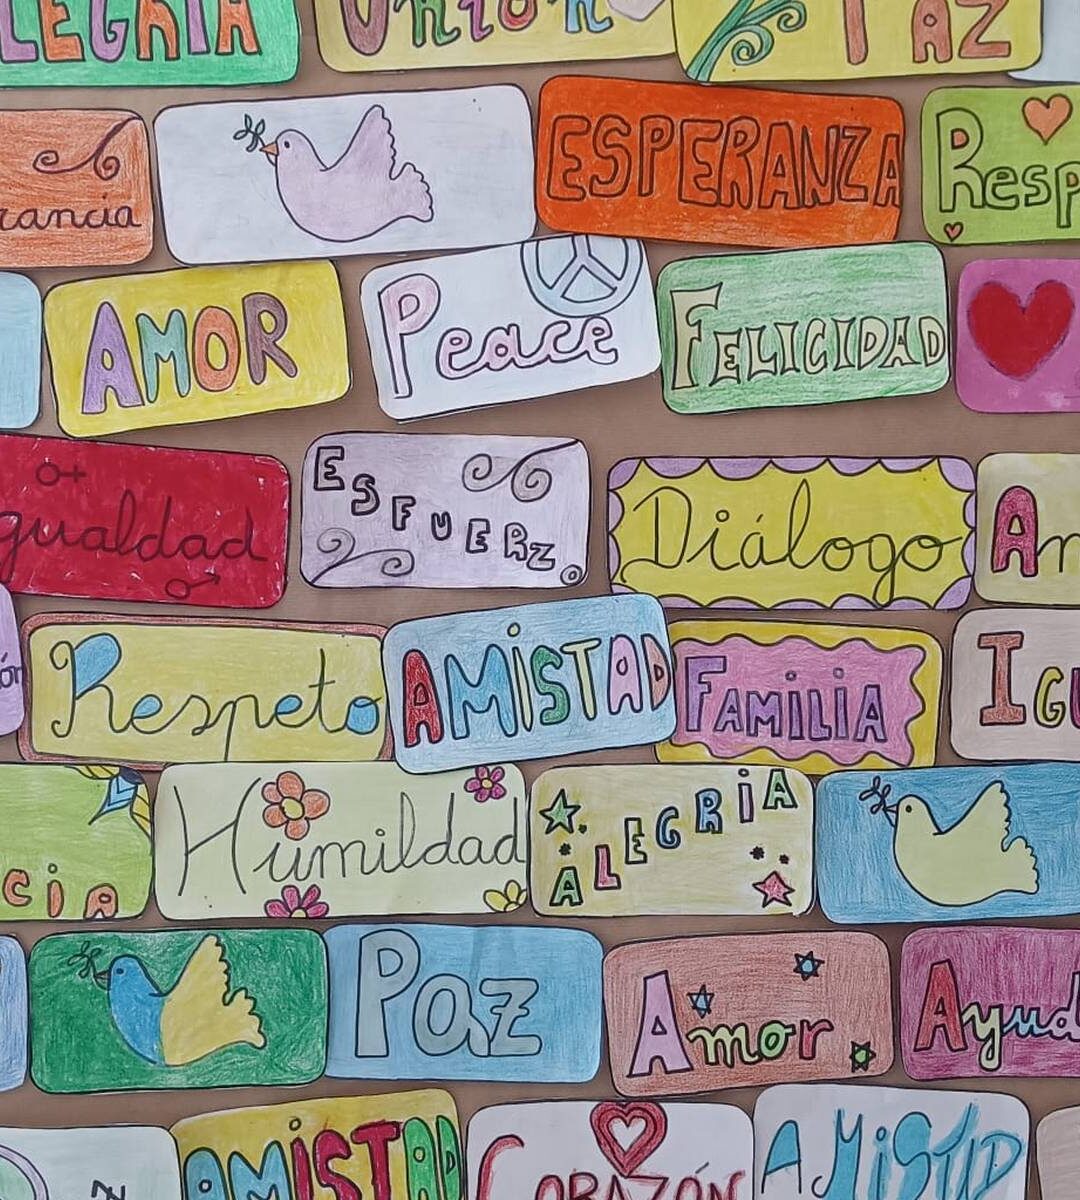 LEGRIA
Unión
PAZ
rancia
ESPERANZA
Resp
AMOR
Peace
FELICIDAD
gualdad
ESFUERZO
Diálogo
Am
ón
Respeto
AMiSTAD
FAMiLiA
IGU
cia
Humildad
ALEGRiA
Paz
Amor
Ayud
AMiSTAD
CORAZÓN
AMiSTAD